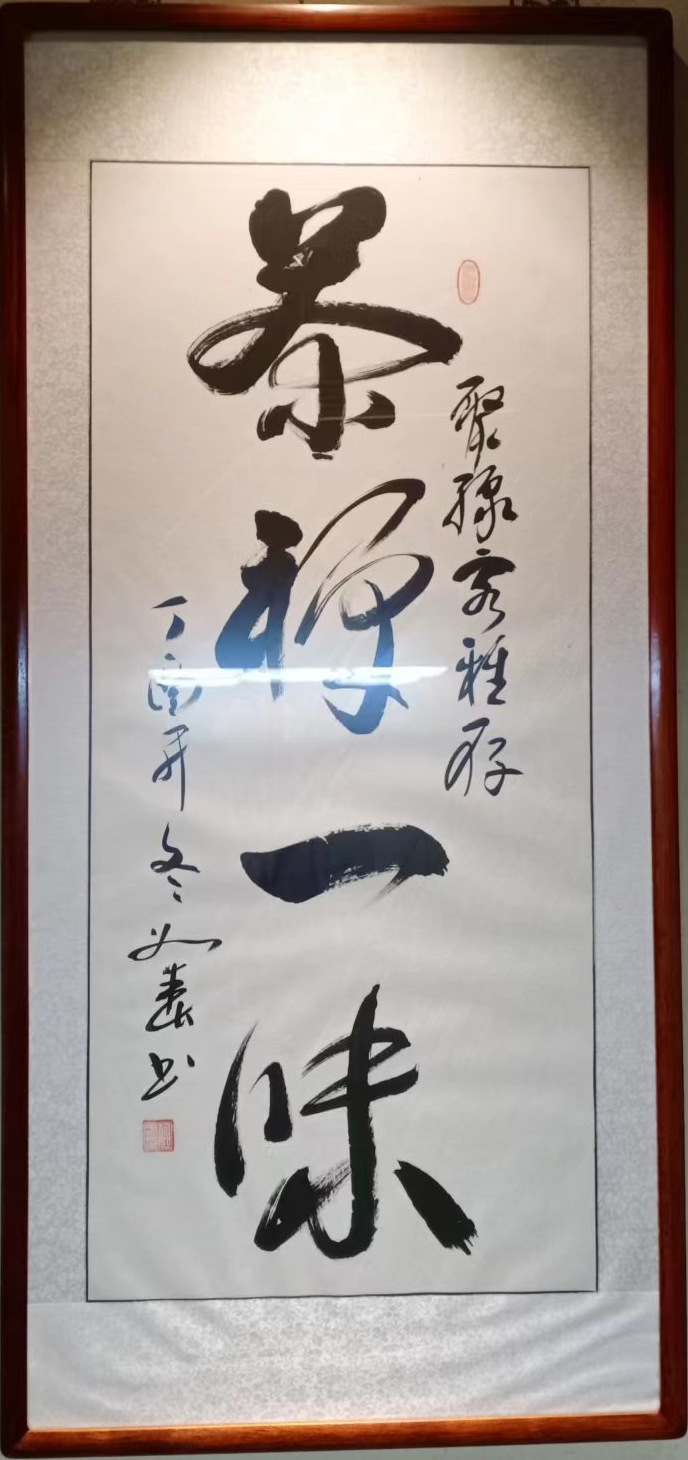 聚缘客雅存
茶禅一味
丁酉年冬 书